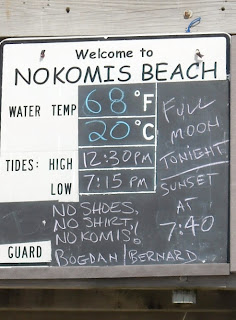 Welcome to
NOKOMIS BEACH
WATER TEMP 68 °F
20 °C
TIDES: HIGH 12:30PM
LOW 7:15 PM
FULL
MOON
TONIGHT
SUNSET
AT
7:40
NO SHOES,
NO SHIRT,
NO KOMIS!
GUARD BOGDAN/BERNARD